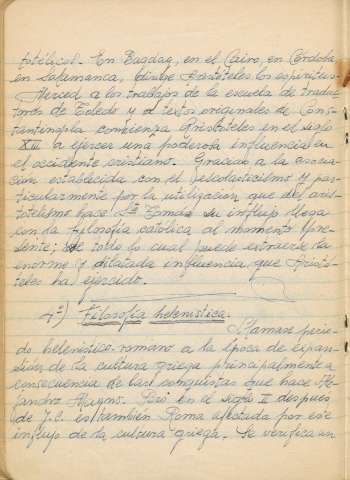 totélicos. En Bagdag, en el Cairo, en Córdoba
en Salamanca, dirige Aristóteles los espíritus.
Merced a los trabajos de la escuela de traduc
tores de Toledo y a textos originales de Cons-
tantinopla comienza Aristóteles en el siglo
XIII a ejercer una poderosa influencia en
el occidente cristiano. Gracias a la asocia
ción establecida con el escolasticismo y par-
ticularmente por la utilización que del aris-
totelismo hace Sto Tomás su influjo llega
con la filosofía católica al momento pre-
sente; de todo lo cual puede extraerse la
enorme y dilatada influencia que Aristó-
teles ha ejercido.
4º) Filosofía helenística.
Llámase perío-
do helenístico-romano a la época de expan-
sión de la cultura griega principalmente a
consecuencia de las conquistas que hace Ale-
jandro Magno. Pero en el siglo II después
de J.C. es también Roma afectada por ese
influjo de la cultura griega. Se verifica un